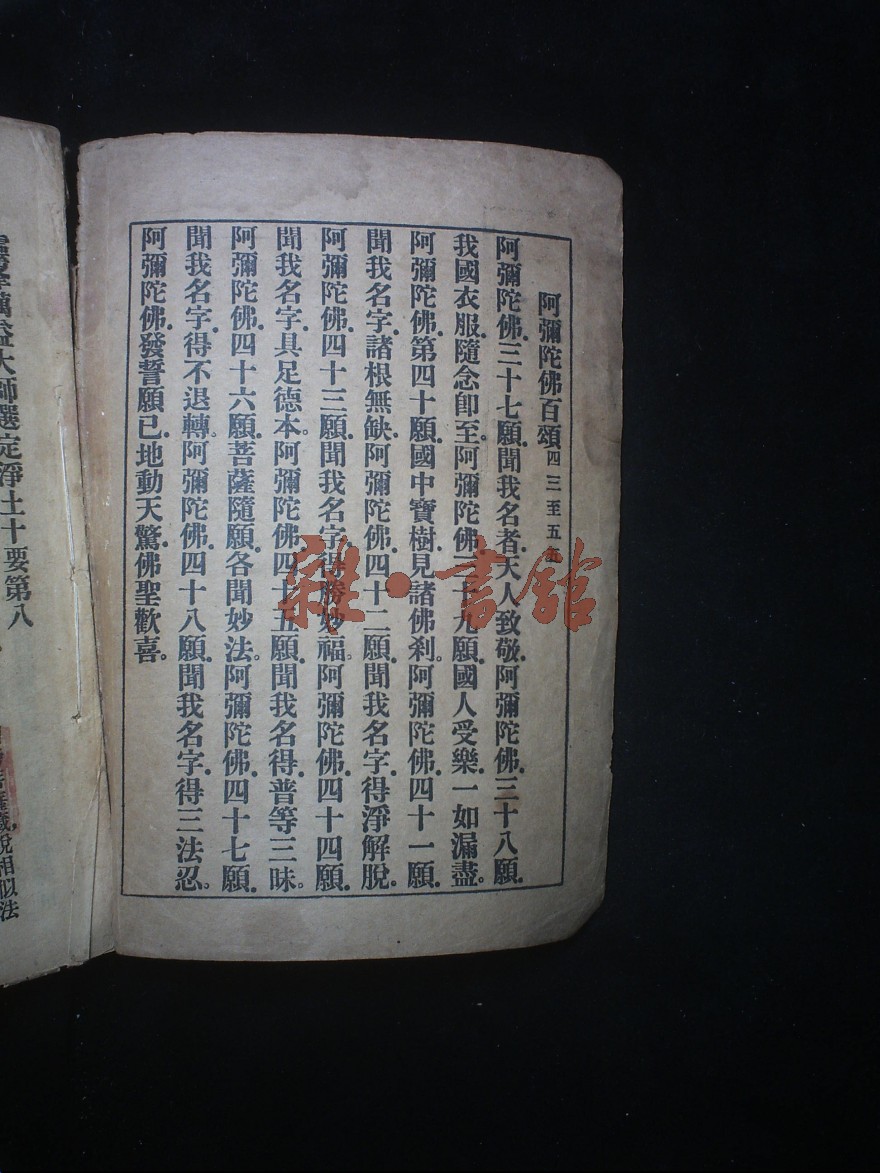 阿彌陀佛百頌四三至五
阿彌陀佛三十七願聞我名者天人致敬阿彌陀佛三十八願
我國衣服隨念卽至。阿彌陀佛三十九願國人受樂一如漏盡。
阿彌陀佛第四十願國中寶樹見諸佛刹。阿彌陀佛四十一願
聞我名字諸根無缺。阿彌陀佛四十二願聞我名字得淨解脫。
阿彌陀佛四十三願聞我名字得勝妙福。阿彌陀佛四十四願
聞我名字具足德本。阿彌陀佛四十五願聞我名得普等三昧。
阿彌陀佛四十六願菩薩隨願各聞妙法。阿彌陀佛四十七願
聞我名字得不退轉。阿彌陀佛四十八願聞我名字得三法忍。
阿彌陀佛發誓願已地動天驚佛聖歡喜。
大師選定淨土十要第八
說相似法
雜·書館